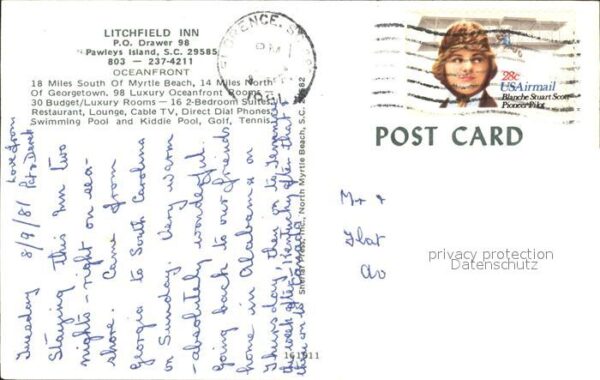 LITCHFIELD INN
P.O. Drawer 98
Pawleys Island, S.C. 29585
803 — 237-4211
OCEANFRONT
18 Miles South Of Myrtle Beach, 14 Miles North
Of Georgetown. 98 Luxury Oceanfront Rooms —
30 Budget/Luxury Rooms — 16 2-Bedroom Suites,
Restaurant, Lounge, Cable TV, Direct Dial Phones,
Swimming Pool and Kiddie Pool, Golf, Tennis.
FLORENCE, S.C.
28c
USAirmail
Blanche Stuart Scott
Pioneer Pilot
POST CARD
Love from
Pat &
Tuesday 8/9/81
Staying this Inn two
nights - right on sea-
shore. Came from
Georgia to South Carolina
on Sunday. Very warm
- absolutely wonderful.
Going back to our friends
home in Alabama on
Thursday, then on to
the week after, Kentucky after that &
then on to Canada
Mr &
Flat
privacy protection
Datenschutz
Press, Inc., North Myrtle Beach, S.C.
161911